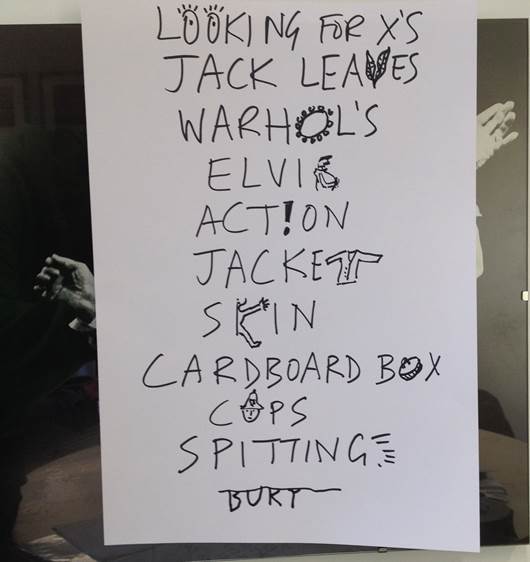 LOOKING FOR X'S
JACK LEAVES
WARHOL'S
ELVIS
ACT!ON
JACKET
SKIN
CARDBOARD BOX
COPS
SPITTING
BURT